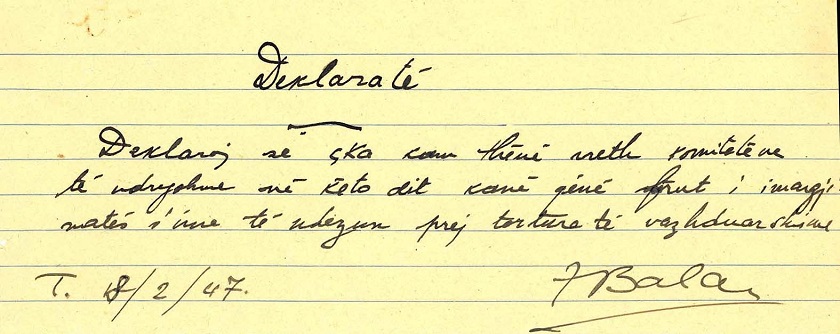 Deklaratë
Deklaroj se çka kam thënë rreth komiteteve
të ndryshme në këto dit kanë qënë frut i imargji
natës s'ime të ndezun prej torturatë vazhduarshme
T. 18/2/47. JBalan